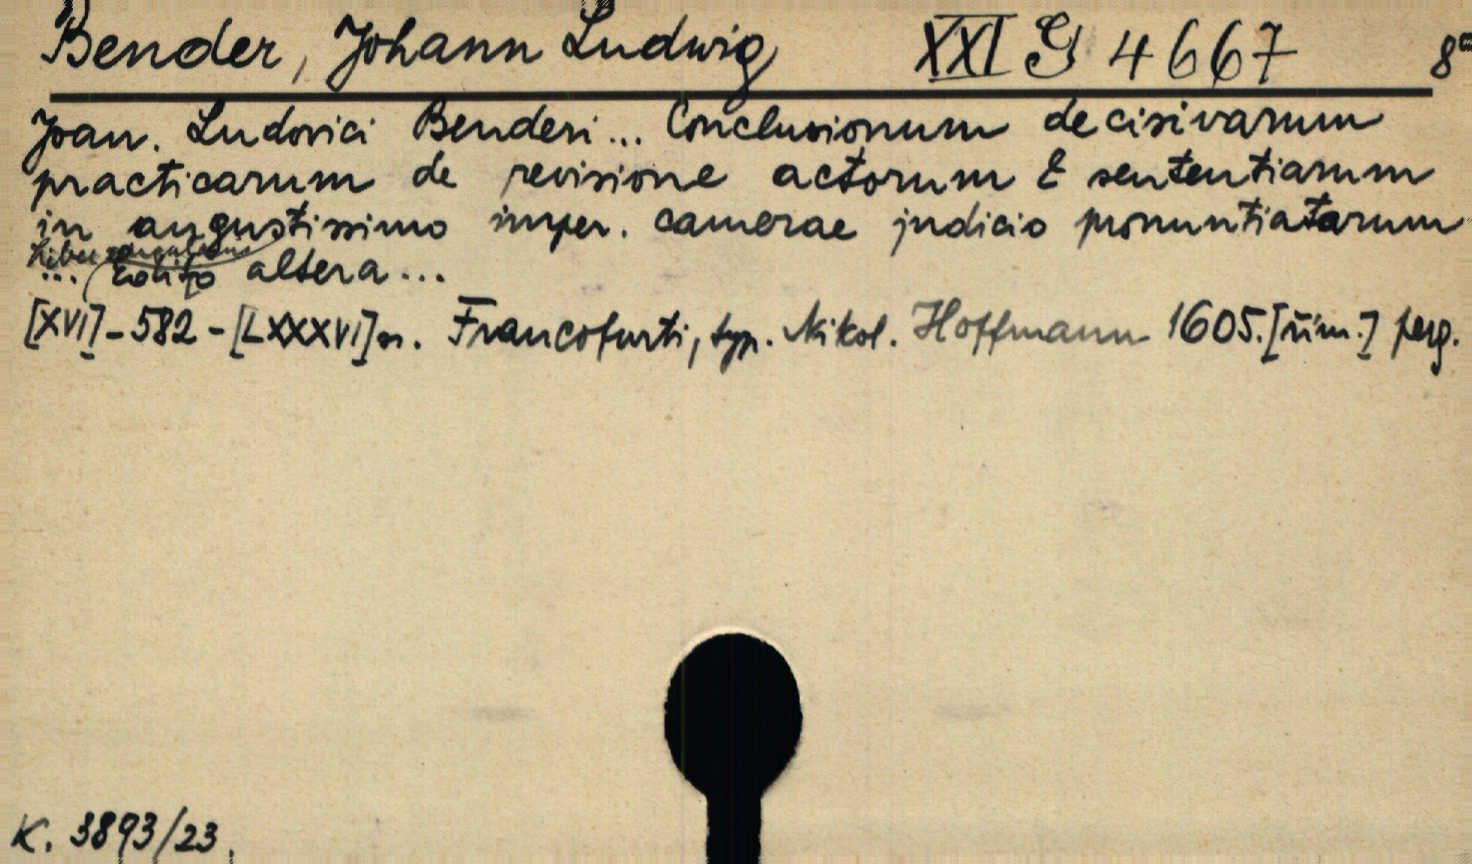 Bender, Johann Ludwig XXI G 4667 8°
Joan. Ludovici Benderi... Conclusionum decisivarum
practicarum de revisione actorum & sententiarum
in augustissimo imper. camerae judicio pronuntiatarum
Liber singularis
... Editio altera...
[XVI]-582-[LXXXVI]s. Francofurti, typ. Nikol. Hoffmann 1605.[řím.] perg.
K. 3893/23.